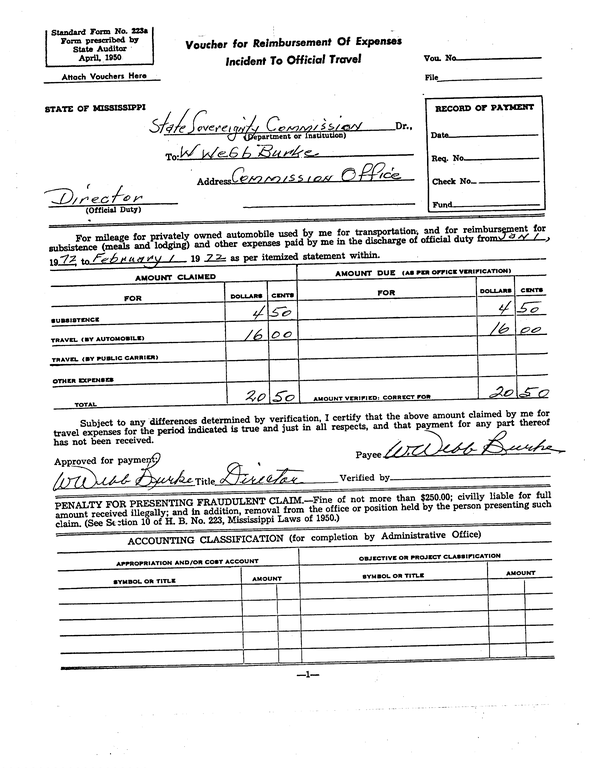 Standard Form No. 223a
Form prescribed by
State Auditor
April, 1950
Attach Vouchers Here
Voucher for Reimbursement Of Expenses
Incident To Official Travel
Vou. No.
File
STATE OF MISSISSIPPI
State Sovereignty Commission Dr.,
(Department or Institution)
To: W Webb Burke
Address Commission Office
Director
(Official Duty)
RECORD OF PAYMENT
Date
Req. No.
Check No.
Fund
For mileage for privately owned automobile used by me for transportation, and for reimbursement for
subsistence (meals and lodging) and other expenses paid by me in the discharge of official duty from Jan 1,
1972 to February 1 1972 as per itemized statement within.
AMOUNT CLAIMED
AMOUNT DUE (AS PER OFFICE VERIFICATION)
FOR DOLLARS CENTS FOR DOLLARS CENTS
SUBSISTENCE 4 50 4 50
TRAVEL (BY AUTOMOBILE) 16 00 16 00
TRAVEL (BY PUBLIC CARRIER)
OTHER EXPENSES
TOTAL 20 50 AMOUNT VERIFIED: CORRECT FOR 20 50
Subject to any differences determined by verification, I certify that the above amount claimed by me for
travel expenses for the period indicated is true and just in all respects, and that payment for any part thereof
has not been received.
Payee W. Webb Burke
Approved for payment
W Webb Burke Title Director Verified by
PENALTY FOR PRESENTING FRAUDULENT CLAIM.—Fine of not more than $250.00; civilly liable for full
amount received illegally; and in addition, removal from the office or position held by the person presenting such
claim. (See Section 10 of H. B. No. 223, Mississippi Laws of 1950.)
ACCOUNTING CLASSIFICATION (for completion by Administrative Office)
APPROPRIATION AND/OR COST ACCOUNT OBJECTIVE OR PROJECT CLASSIFICATION
SYMBOL OR TITLE AMOUNT SYMBOL OR TITLE AMOUNT
—1—